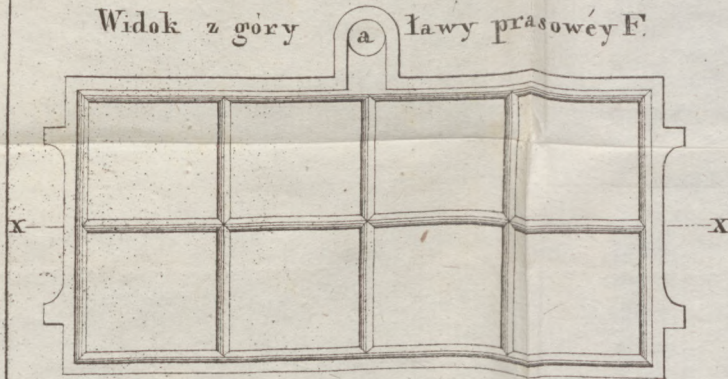 Widok z góry a ławy prasowéy F.
X X